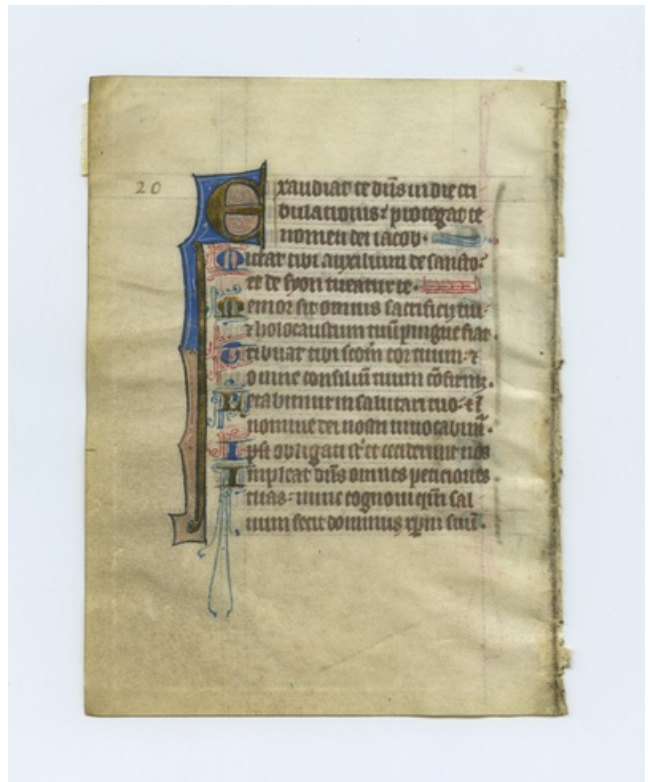 20
Exaudiat te dñs in die tri
bulationis: protegat te
nomen dei iacob.
Mittat tibi auxilium de sancto:
et de syon tueatur te.
Memor sit omnis sacrificij tui:
⁊ holocaustum tuū pingue fiat.
Tribuat tibi scđm cor tuum: ⁊
omne consilium tuum cōfirmet.
Letabimur in salutari tuo: ⁊ ī
nomine dei nostri
Ipsi obligati sūt et ceciderunt nos
Impleat dñs omnes peticiones
tuas: nunc cognoui qm̄ sal
uum fecit dominus xpm suū.